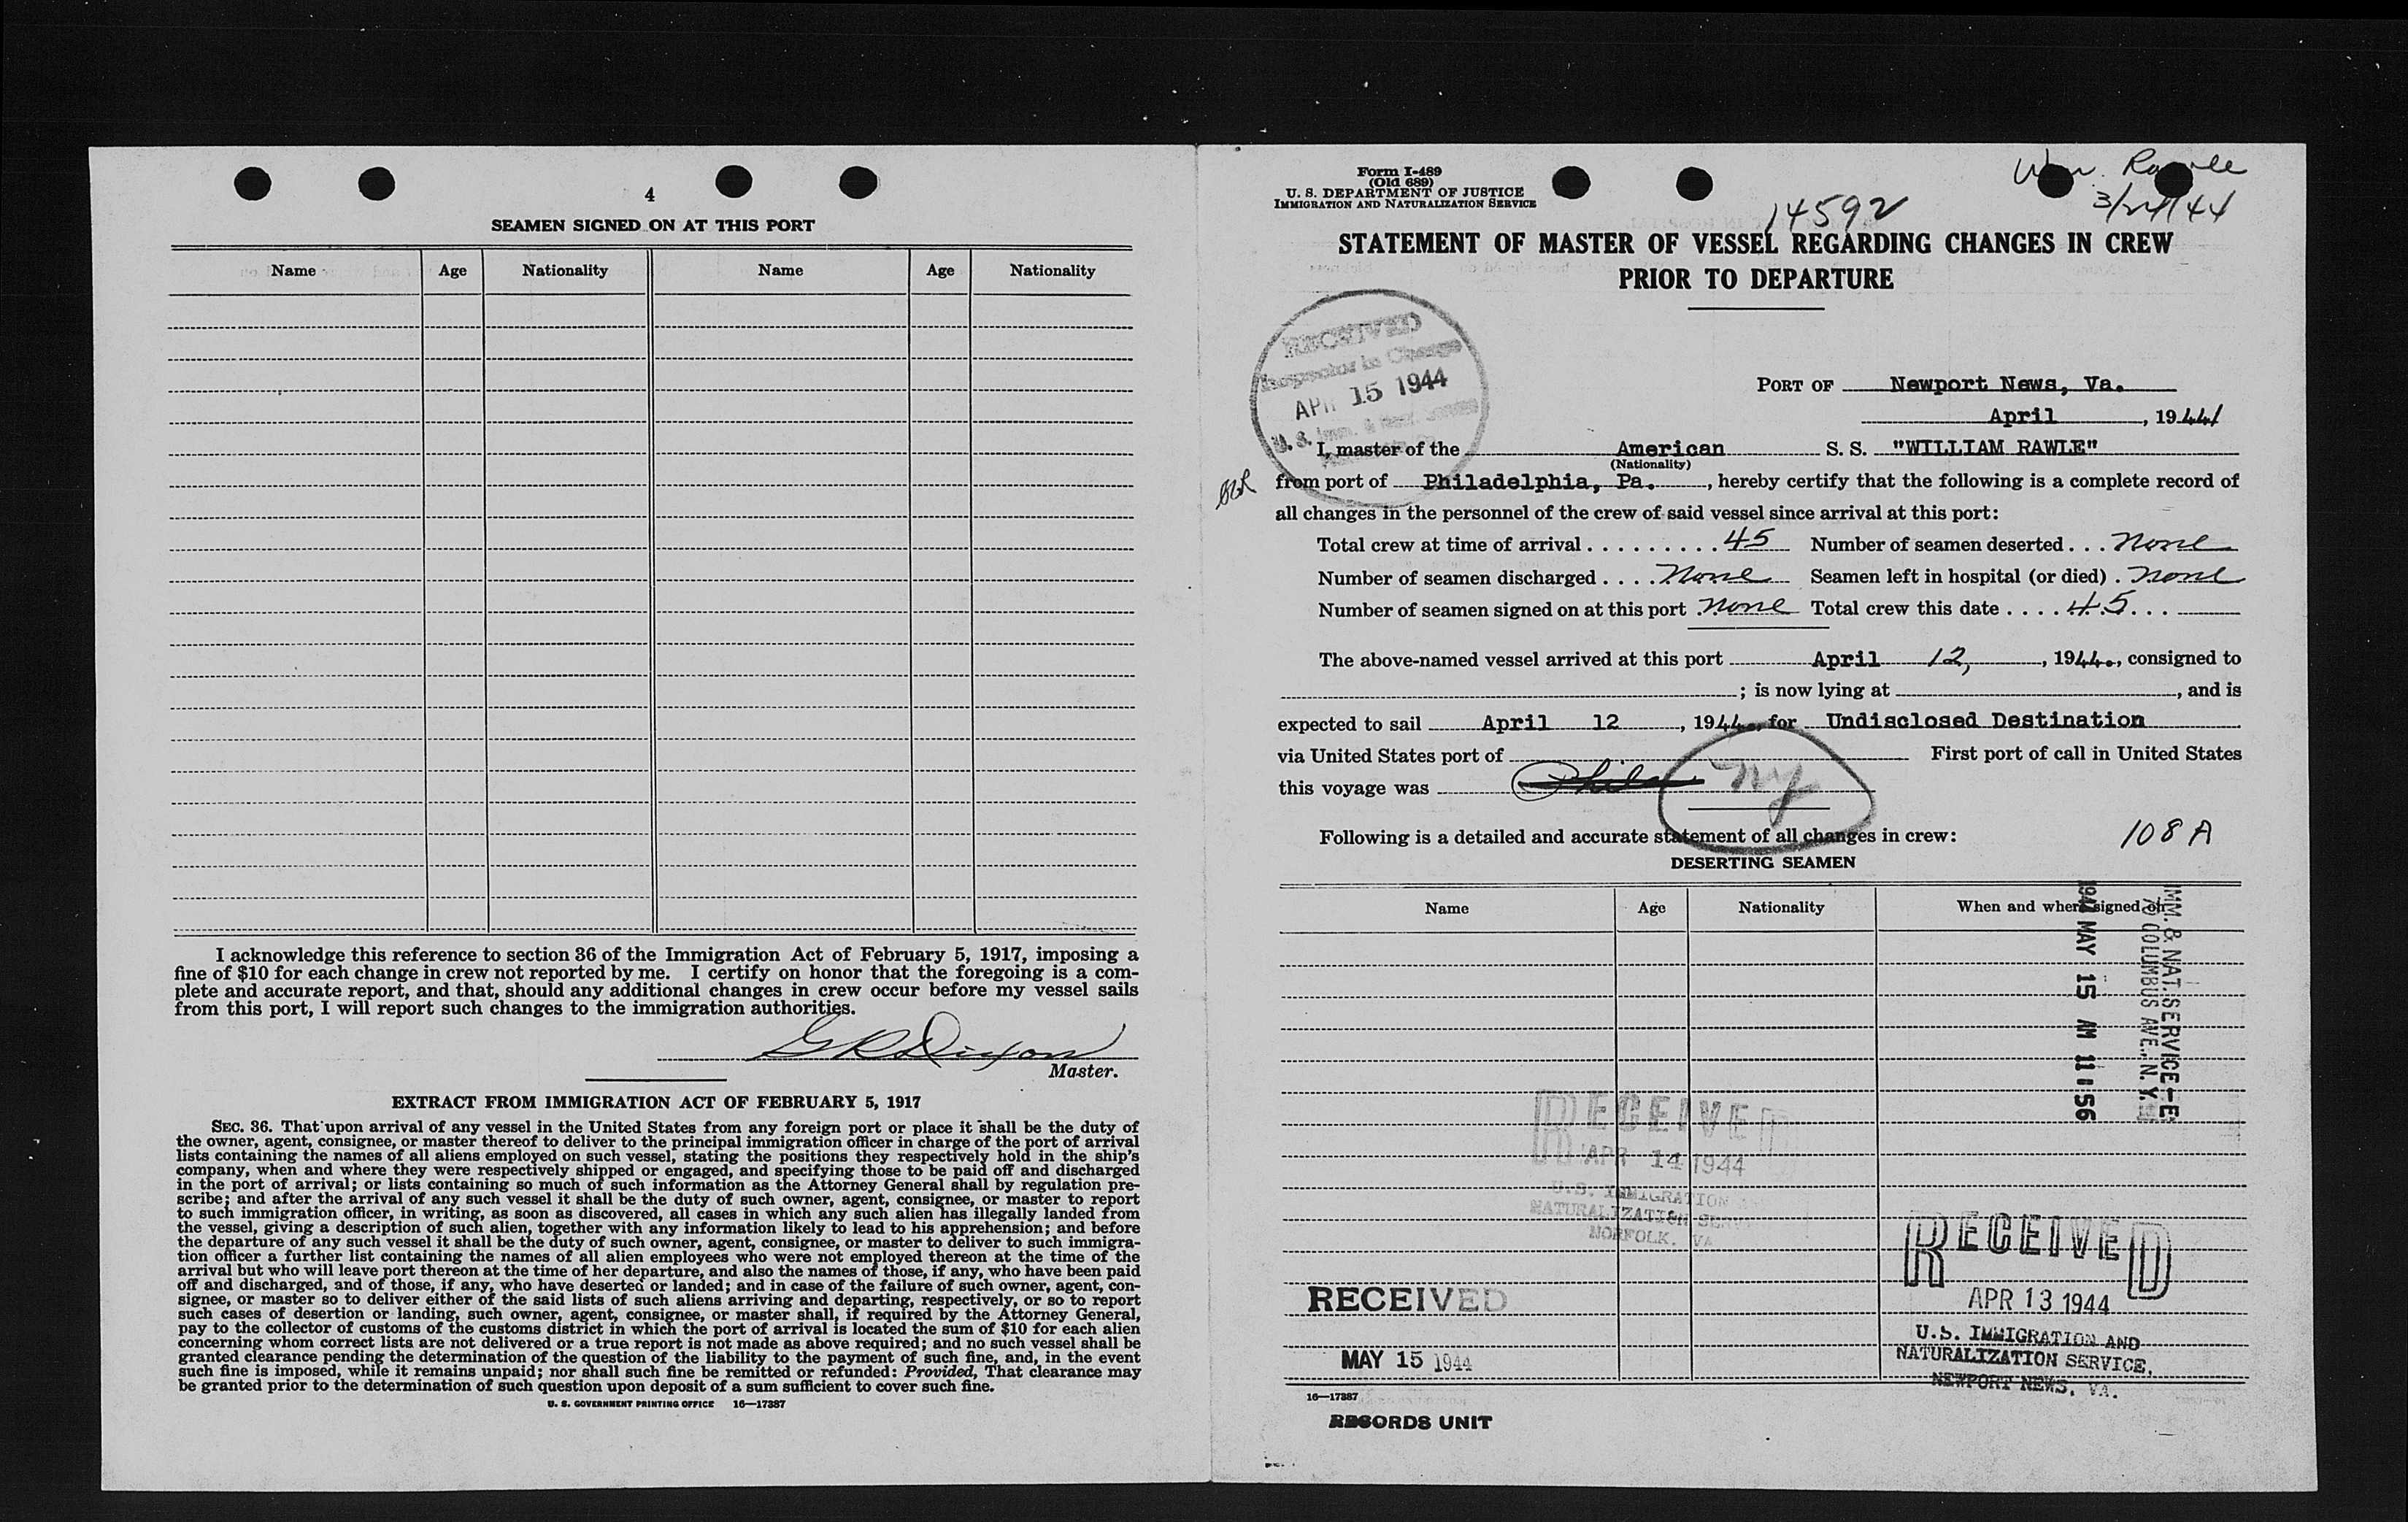 4
SEAMEN SIGNED ON AT THIS PORT
Name Age Nationality Name Age Nationality
I acknowledge this reference to section 36 of the Immigration Act of February 5, 1917, imposing a
fine of $10 for each change in crew not reported by me. I certify on honor that the foregoing is a com-
plete and accurate report, and that, should any additional changes in crew occur before my vessel sails
from this port, I will report such changes to the immigration authorities.
G R Dixon
Master.
EXTRACT FROM IMMIGRATION ACT OF FEBRUARY 5, 1917
SEC. 36. That upon arrival of any vessel in the United States from any foreign port or place it shall be the duty of
the owner, agent, consignee, or master thereof to deliver to the principal immigration officer in charge of the port of arrival
lists containing the names of all aliens employed on such vessel, stating the positions they respectively hold in the ship's
company, when and where they were respectively shipped or engaged, and specifying those to be paid off and discharged
in the port of arrival; or lists containing so much of such information as the Attorney General shall by regulation pre-
scribe; and after the arrival of any such vessel it shall be the duty of such owner, agent, consignee, or master to report
to such immigration officer, in writing, as soon as discovered, all cases in which any such alien has illegally landed from
the vessel, giving a description of such alien, together with any information likely to lead to his apprehension; and before
the departure of any such vessel it shall be the duty of such owner, agent, consignee, or master to deliver to such immigra-
tion officer a further list containing the names of all alien employees who were not employed thereon at the time of the
arrival but who will leave port thereon at the time of her departure, and also the names of those, if any, who have been paid
off and discharged, and of those, if any, who have deserted or landed; and in case of the failure of such owner, agent, con-
signee, or master so to deliver either of the said lists of such aliens arriving and departing, respectively, or so to report
such cases of desertion or landing, such owner, agent, consignee, or master shall, if required by the Attorney General,
pay to the collector of customs of the customs district in which the port of arrival is located the sum of $10 for each alien
concerning whom correct lists are not delivered or a true report is not made as above required; and no such vessel shall be
granted clearance pending the determination of the question of the liability to the payment of such fine, and, in the event
such fine is imposed, while it remains unpaid; nor shall such fine be remitted or refunded: Provided, That clearance may
be granted prior to the determination of such question upon deposit of a sum sufficient to cover such fine.
U. S. GOVERNMENT PRINTING OFFICE 16—17387
Form I-489
(Old 689)
U. S. DEPARTMENT OF JUSTICE
IMMIGRATION AND NATURALIZATION SERVICE
Wm. Rawle
3/24/44
14592
STATEMENT OF MASTER OF VESSEL REGARDING CHANGES IN CREW
PRIOR TO DEPARTURE
RECEIVED
Inspector in Charge
APR 15 1944
U. S. Imm. & Nat. Service
PORT OF Newport News, Va.
April, 1944
I, master of the American S. S. "WILLIAM RAWLE"
(Nationality)
from port of Philadelphia, Pa., hereby certify that the following is a complete record of
all changes in the personnel of the crew of said vessel since arrival at this port:
Total crew at time of arrival . . . . . . . . . 45 Number of seamen deserted . . . None
Number of seamen discharged . . . . None Seamen left in hospital (or died) . None
Number of seamen signed on at this port None Total crew this date . . . . 45 . . .
The above-named vessel arrived at this port April 12, 1944, consigned to
; is now lying at , and is
expected to sail April 12, 1944, for Undisclosed Destination
via United States port of First port of call in United States
this voyage was Phila NY
Following is a detailed and accurate statement of all changes in crew:
108 A
DESERTING SEAMEN
Name Age Nationality When and where signed on
IMM. & NAT. SERVICE-E
70 COLUMBUS AVE., N. Y.
1944 MAY 15 AM 11:56
RECEIVED
APR 14 1944
U.S. IMMIGRATION
NATURALIZATION SERV
NORFOLK, VA
RECEIVED
APR 13 1944
U.S. IMMIGRATION AND
NATURALIZATION SERVICE,
NEWPORT NEWS, VA.
RECEIVED
MAY 15 1944
16—17387
RECORDS UNIT